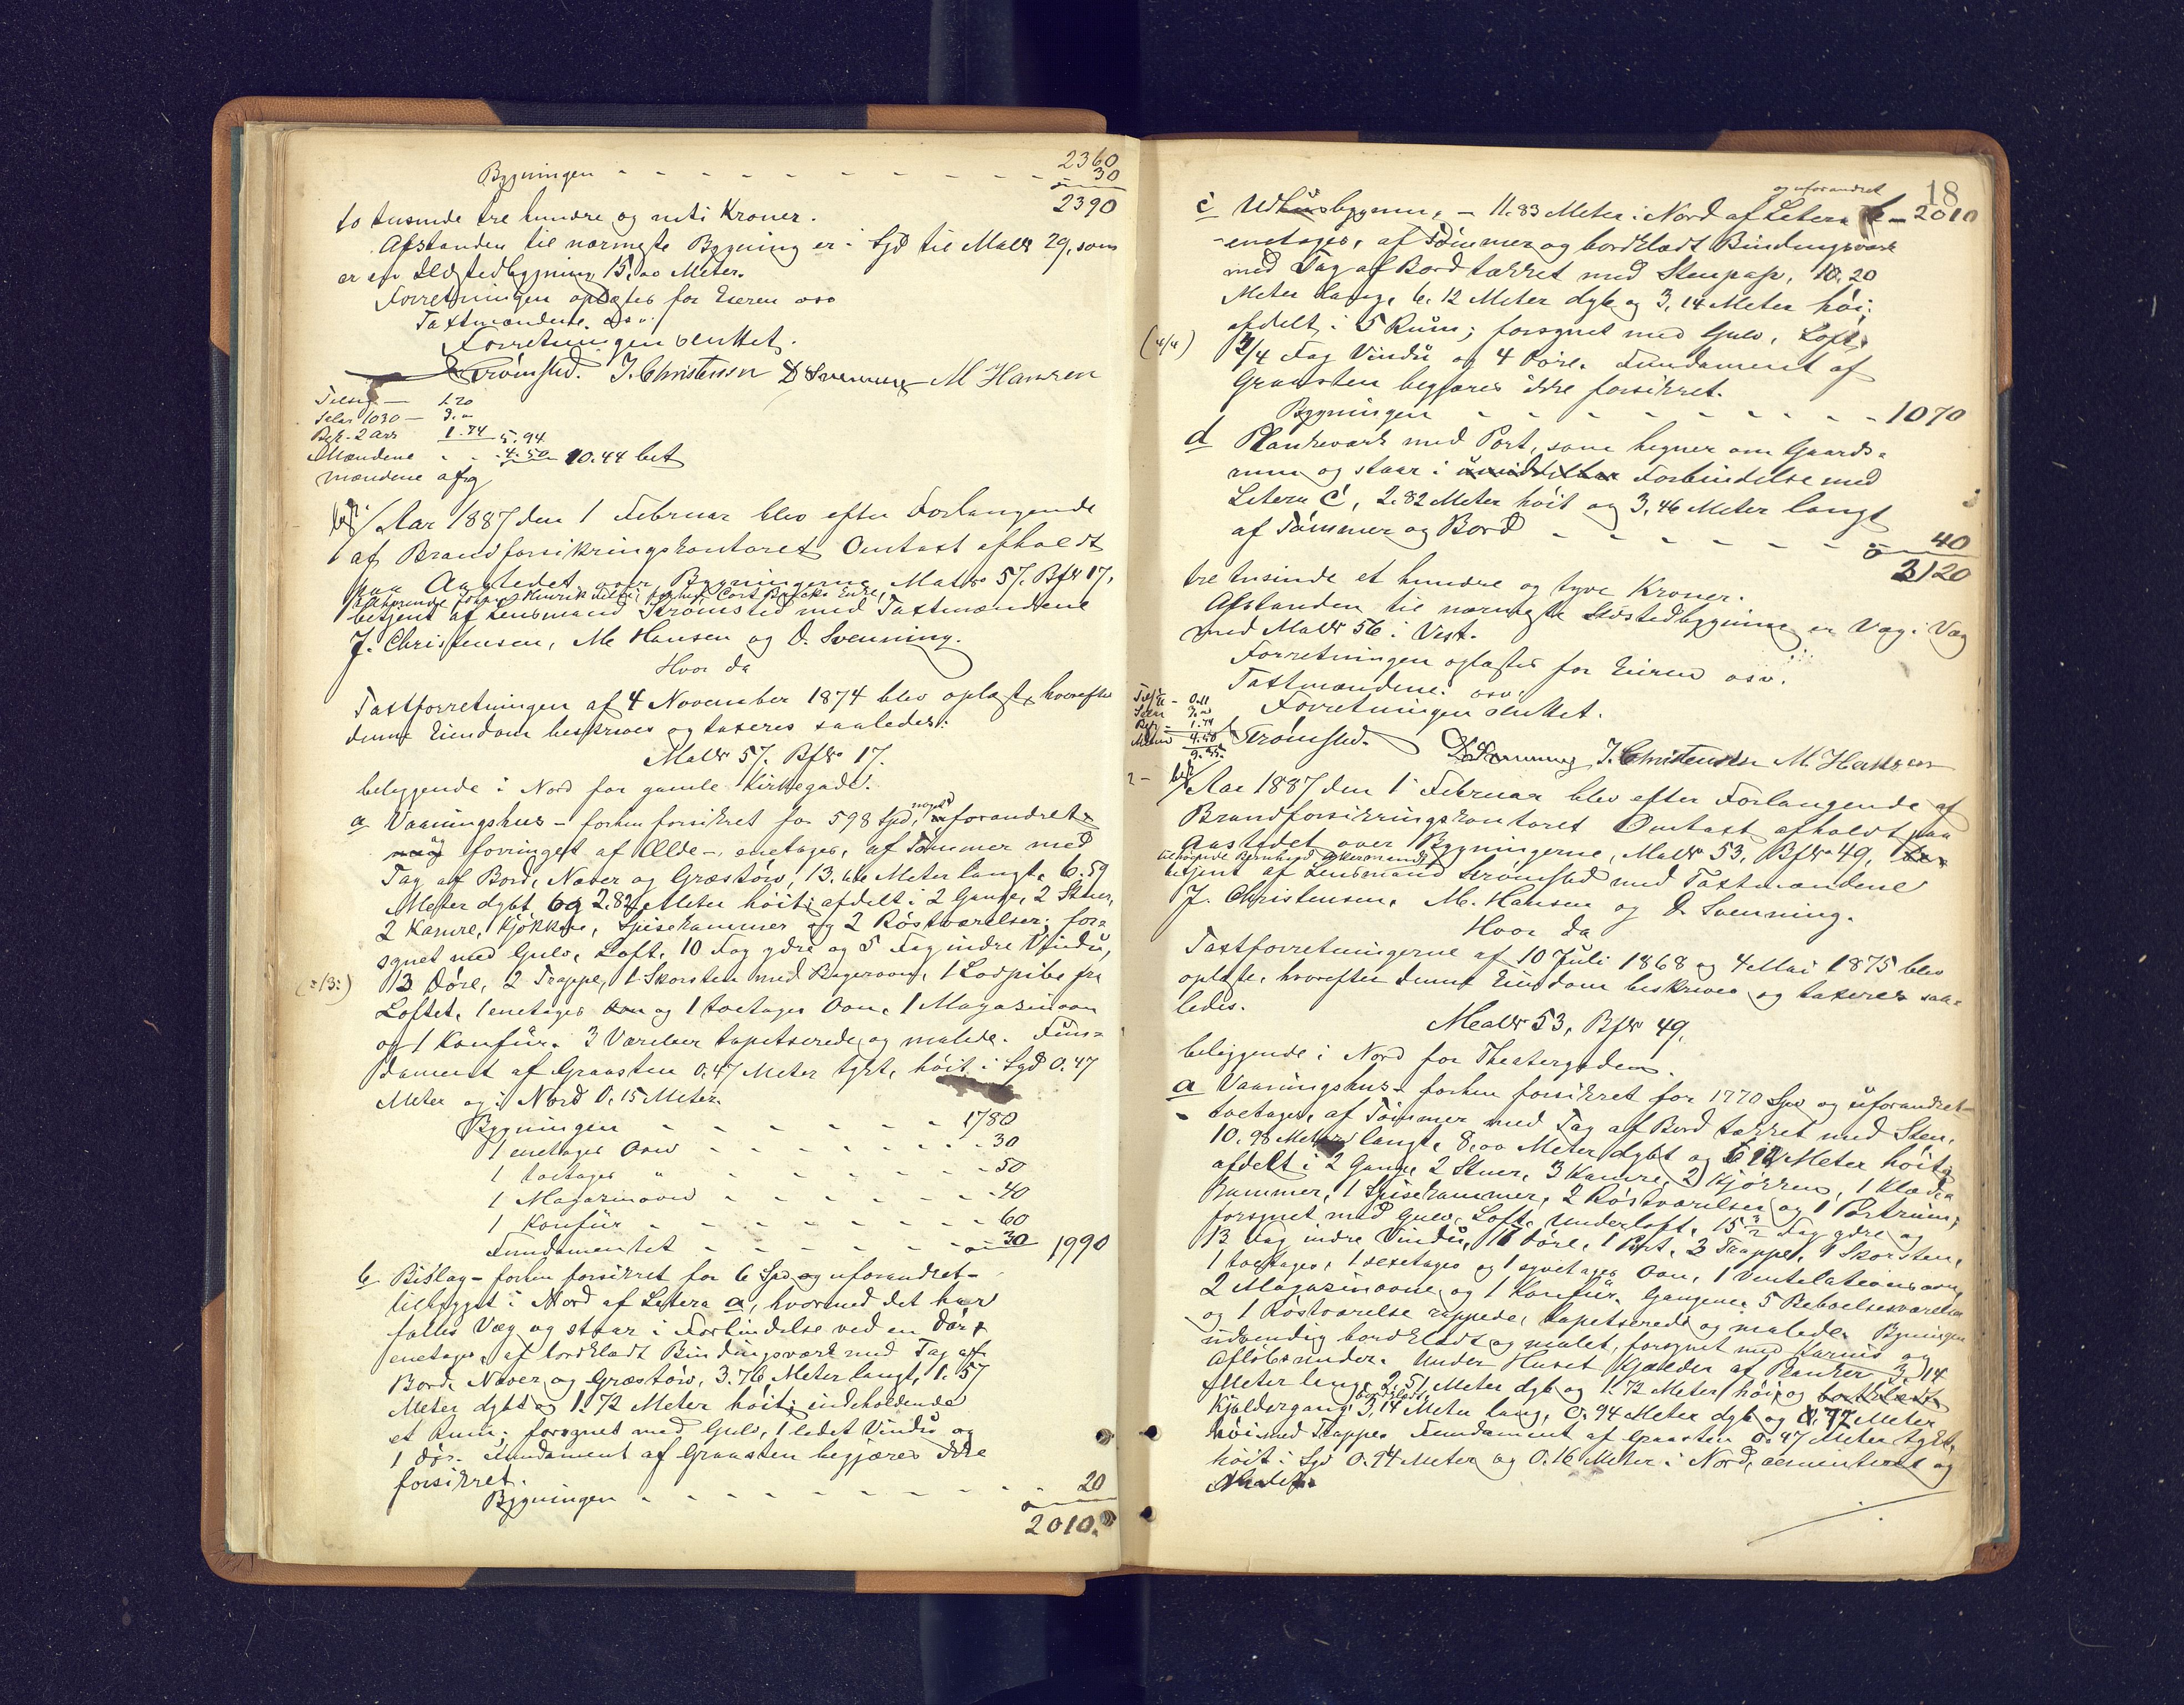 2360
Bygningen - - - - - - - - - - 30
2390
to tusinde tre hundre og niti Kroner.
Afstanden til nærmeste Bygning er i Syd til Matr 29, som
er en Ildstedbygning 15,00 Meter.
Forretningen oplæstes for Eieren osv
Taxtmændene. osv.
Forretningen sluttet.
Strömsted. J. Christensen D Svenning M Hansen
Tilsig — 1.20
1030 — 3.
Bef. 2 1.74 5.94
Mændene - - 4.50 10.44 bet
mændene afg
Aar 1887 den 1 Februar blev efter Forlangende
af Brandforsikringskontoret Omtaxt afholdt
paa Aastedet over Bygningerne Matr 57. Bfr 17,
tilhørende Henrik
betjent af Lensmand Strömsted med Taxtmændene
J. Christensen, M. Hansen og D. Svenning.
Hvor da
Taxtforretningen af 4 November 1874 blev oplæst, hvorefter
denne Eiendom beskrives og taxeres saaledes:
Matr 57. Bfr 17.
beliggende i Nord for gamle Kirkegade.
a Vaaningshus - forhen forsikret for 598 Spd, noget forandret
og forringet af Ælde -, enetages, af Tömmer med
Tag af Bord, Næver og Græstörv, 13.66 Meter langt, 6.59
Meter dybt og 2.82 Meter höit; afdelt i 2 Gange, 2 Stuer,
2 Kamre, Kjökken, Spisekammer og 2 Röstværelser; for=
synet med Gulv, Loft, 10 Fag ydre og 5 Fag indre Vindu,
13 Döre, 2 Trappe, 1 Skorsten med Bagerovn, 1 Lodpibe fra
Loftet, 1 enetages Ovn og 1 toetages Ovn, 1 Magasinovn
og 1 Komfür. 3 Værelser tapetserede og malede. Fun=
dament af Graasten 0.47 Meter tykt, höit i Syd 0.47
Meter og i Nord 0.15 Meter.
Bygningen - - - - - - 1780
1 enetages Ovn - - - - - - 30
1 toetages " - - - - - - 50
1 Magasinovn - - - - - - 40
1 Komfür - - - - - - - 60
Fundamentet - - - - - - 30 1990
b Bislag - forhen forsikret for 6 Spd og uforandret -
tilbygget i Nord af Letera a, hvormed det har
fælles Væg og staar i Forbindelse ved en Dör,
enetages, af bordklædt Bindingsværk med Tag af
Bord, Næver og Græstörv, 3.76 Meter langt, 1.57
Meter dybt og 1.72 Meter höit; indeholdende
et Rum; forsynet med Gulv, 1 ledet Vindu og
1 Dör. Fundament af Graasten begjæres ikke
forsikret.
Bygningen - - - - - - - - - 20
2010.
18
og uforandret
c Udhusbygning, - 11.83 Meter i Nord af Letera b - 2010
-enetages, af Tömmer og bordklædt Bindingsværk
med Tag af Bord tækket med Stenpap, 10.20
Meter lang, 6.12 Meter dyb og 3,14 Meter höi;
afdelt i 5 Rum; forsynet med Gulv, Loft,
3/4 Fag Vindu og 4 Döre. Fundament af
Graasten begjæres ikke forsikret.
Bygningen - - - - - - - - - 1070
d Plankeværk med Port, som hegner om Gaards=
rum og staar i umiddelbar Forbindelse med
Letera C, 2.82 Meter höit og 3,46 Meter langt
af Tömmer og Bord - - - - - - - 40
3120
tre tusinde et hundre og tyve Kroner.
Afstanden til nærmeste Ildstedbygning er Væg i Væg
med Matr 56 i Vest.
Forretningen oplæstes for Eieren osv.
Taxtmændene. osv.
Forretningen sluttet.
Strömsted. D Svenning J. Christensen M. Hansen
Aar 1887 den 1 Februar blev efter Forlangende af
Brandforsikringskontoret Omtaxt afholdt paa
Aastedet over Bygningerne, Matr 53, Bfr 49,
tilhørende Bernhard
betjent af Lensmand Strömsted med Taxtmændene
J. Christensen, M. Hansen og D. Svenning.
Hvor da
Taxtforretningerne af 10 Juli 1868 og 4 Mai 1875 blev
oplæste, hvorefter denne Eiendom beskrives og taxeres saa=
ledes.
Matr 53, Bfr 49.
beliggende i Nord for Theatergaden.
a Vaaningshus - forhen forsikret for 1770 Spd og uforandret -
- toetages, af Tömmer med Tag af Bord tækket med Sten,
10.98 Meter langt, 8.00 Meter dybt og Meter höit;
afdelt i 2 Gange, 2 Stuer, 3 Kamre, 2 Kjökken, 1 Klæde=
kammer, 1 Spisekammer, 2 Röstværelser og 1 Portrum;
forsynet med Gulv, Loft, Underloft, 15 Fag ydre og
13 Fag indre Vindu, Döre, 1 Port, 3 Trappe, 1 Skorsten,
1 toetages, 1 sexetages og 1 syvetages Ovn, 1 Ventilationsovn,
2 Magasinovne og 1 Komfür. Gangene, 5 Beboelsesværelser
og 1 Röstværelse rappede, tapetserede og malede. Bygningen
udvendig bordklædt og malet, forsynet med Karnis og
Aflöbsrender. Under Huset Kjælder af Planker 3.14
Meter lang, 2.51 Meter dyb og 1.72 Meter höi og
Kjældergang 3,14 Meter lang, 0.94 Meter dyb og Meter
höi med Trappe. Fundament af Graasten 0.47 Meter tykt,
höit i Syd 0.94 Meter og 0.16 Meter i Nord, cementeret og